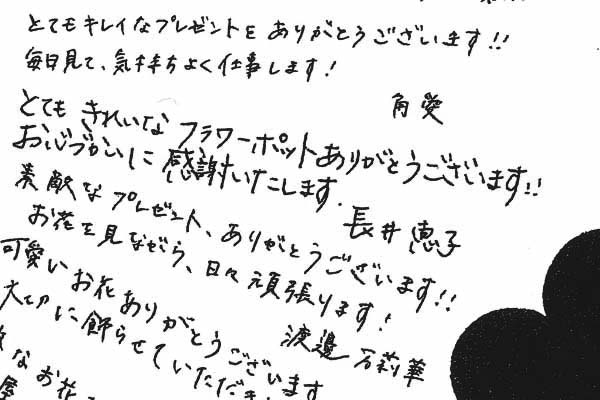 とてもキレイなプレゼントを ありがとう ございます!!
毎日見て、気持ちよく仕事します!
角 愛
とても きれいな フラワーポットありがとうございます!!
お心づかいに 感謝いたします.
長井 恵子
素敵な プレゼント、ありがとうございます!!
お花を見ながら、日々頑張ります!
渡邊 万莉華
可愛い お花 ありがとうございます
大切に飾らせていただき
なお花